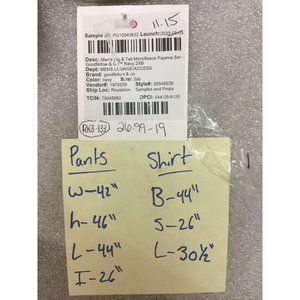 11.15
Sample
PG10043632 Launch:2020-09-05
Desc: Men's Big & Tall Microfleece Pajama Set -
Goodfellow & Co™ Navy 2XB
Dept: MENS LOUNGE/ACCESS
Brand: goodfellow & co
Color: navy Size: 2xb
Vendor#: 1979329 Style#: 00549536
Ship Loc: Royalston - Samples and Props
TCIN: 79945882 DPCI: 044-05-9125
2699-19
Pants Shirt
W-42" B-44"
h-46" S-26"
L-44" L-30½"
I-26"